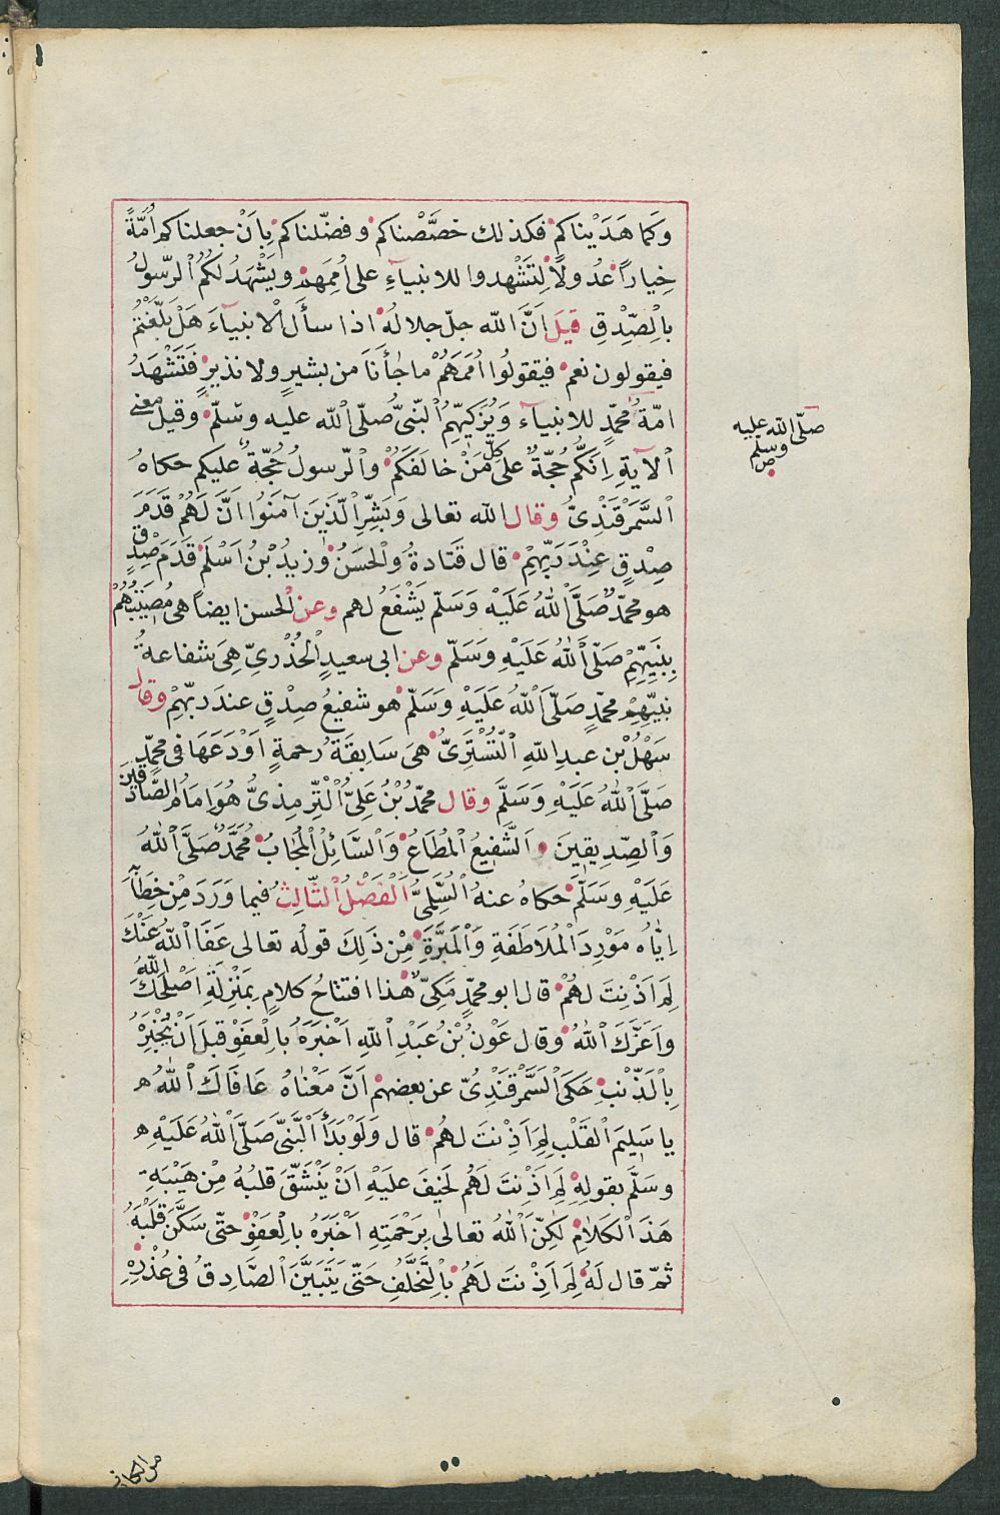 وَكَما هَدَيْناكم فكذلك خصَّصْناكم وفضّلناكم بِاَنْ جعلناكم اُمَّةً
خِياراً عُدولًا لِتَشْهدوا للانبيآءِ على اُمَمِهِمْ ويَشْهَدُ لَكُمُ الرّسولُ
بالصِّدْقِ قيلَ اِنَّ الله جلّ جلالهُ اذا سأَل الانبيآءَ هَلْ بلّغتُمْ
فيقولون نعم فيقولُوا اُمَمُهُمْ ما جاءَنَا من بشيرٍ ولا نذيرٍ فَتَشْهَدُ
امّةُ محمّدٍ للانبيآء وَيُزَكّيهِمُ النّبىُّ صلّى الله عليه وسّلمْ وقيل معنى
الآيةِ اِنَكُّم حُجّةٌ على كلّ مَنْ خالَفَكُمْ والرّسولُ حُجّةٌ عليكم حكاهُ
السَّمَرْقَنْدِىُّ وقال الله تعالى وَبَشِّرِ الّذَينَ آمَنُوا اَنَّ لَهُمْ قَدَمَ
صِدْقٍ عِنْدَ رَبّهِمْ قال قَتادةُ والْحسَنُ وزيدُ بْنُ اَسْلَمَ قَدَمَ صِدْقٍ
هو محمّدٌ صَلَّى اللهُ عَلَيْهِ وَسَلّم يَشْفَعُ لهم وعن الحسن ايضاً هى مُصيبَتُهُمْ
بِنَبِيِّهِمْ صَلّى اللهُ عَلَيْهِ وَسَلّم وعن ابى سعيدٍ الْخُدْرىِّ هِىَ شفاعةُ
نبيّهِمْ محمّدٍ صَلَّى اللهُ عَلَيْهِ وَسَلّم هو شفيعُ صِدْقٍ عندَ ربّهِمْ وقال
سَهْلُ بْن عبدِ اللهِ التُّسْتَرِىُّ هى سَابِقَةُ رَحمةٍ اَوْدَعَهَا فى محمّدٍ
صَلَّى اللهُ عَلَيْهِ وَسَلَّمَ وقال محمّدُ بْنُ عَلىٍّ التِّرمذىُّ هُوَ اِمَامُ الصّادقينَ
وَالصِّدِيقِينَ الشَّفِيعُ الْمُطَاعُ وَالسَّائِلُ الْمُجَابُ مُحَمَّدٌ صَلَّى اللهُ
عَلَيْهِ وَسَلَّمَ حكاهُ عنهُ السُّلَمِىُّ اَلْفَصْلُ الثّالِثُ فيما وَرَدَ مِنْ خِطَابِهِ
اِيّاه مَوْرِدَ الْمُلَاطَفَةِ وَالْمَبَرَّةِ مِنْ ذَلِكَ قولُه تعالى عَفَا اللهُ عَنْكَ
لِمَ اَذِنْتَ لهُمْ قال ابو محمّدٍ مَكىٌّ هَذا افتتاحُ كلامٍ بِمَنْزِلَةِ اَصْلَحَكَ اللهُ
وَاَعَزَّكَ اللهُ وقال عَوْنُ بْنُ عَبْدِ اللهِ اَخْبَرَهُ بالْعَفْوِ قبلَ اَنْ يُخْبِرَهُ
بِالذَّنْبِ حَكَى السَّمَرْقَنْدِىُّ عن بعضهِمْ اَنَّ مَعْنَاهُ عَافَاكَ اللهُ
يا سَليمَ الْقَلْبِ لِمَ اَذِنْتَ لهُم قال وَلَوْ بَدَأَ النَّبِىَّ صَلَّى اللهُ عَلَيْهِ
وسَلّم بقولِهِ لِمَ اَذِنْتَ لَهُمْ لَخيفَ عليْهِ اَنْ يَنْشَقَّ قلبُهُ مِنْ هَيْبَةِ
هَذَا الكلامِ لَكِنَّ اللهُ تعالىٰ بِرَحْمَتِهِ اَخْبَرَهُ بالْعَفْوِ حتّى سَكَّنَ قَلْبَهُ
ثمّ قال لَهُ لِمَ اَذِنْتَ لَهُم بِالتَّخَلُّفِ حَتّى يَتَبَيَّنَ الصَّادِقُ فى عُذْرِهِ
صلّى الله عليه
وسلّم
ص